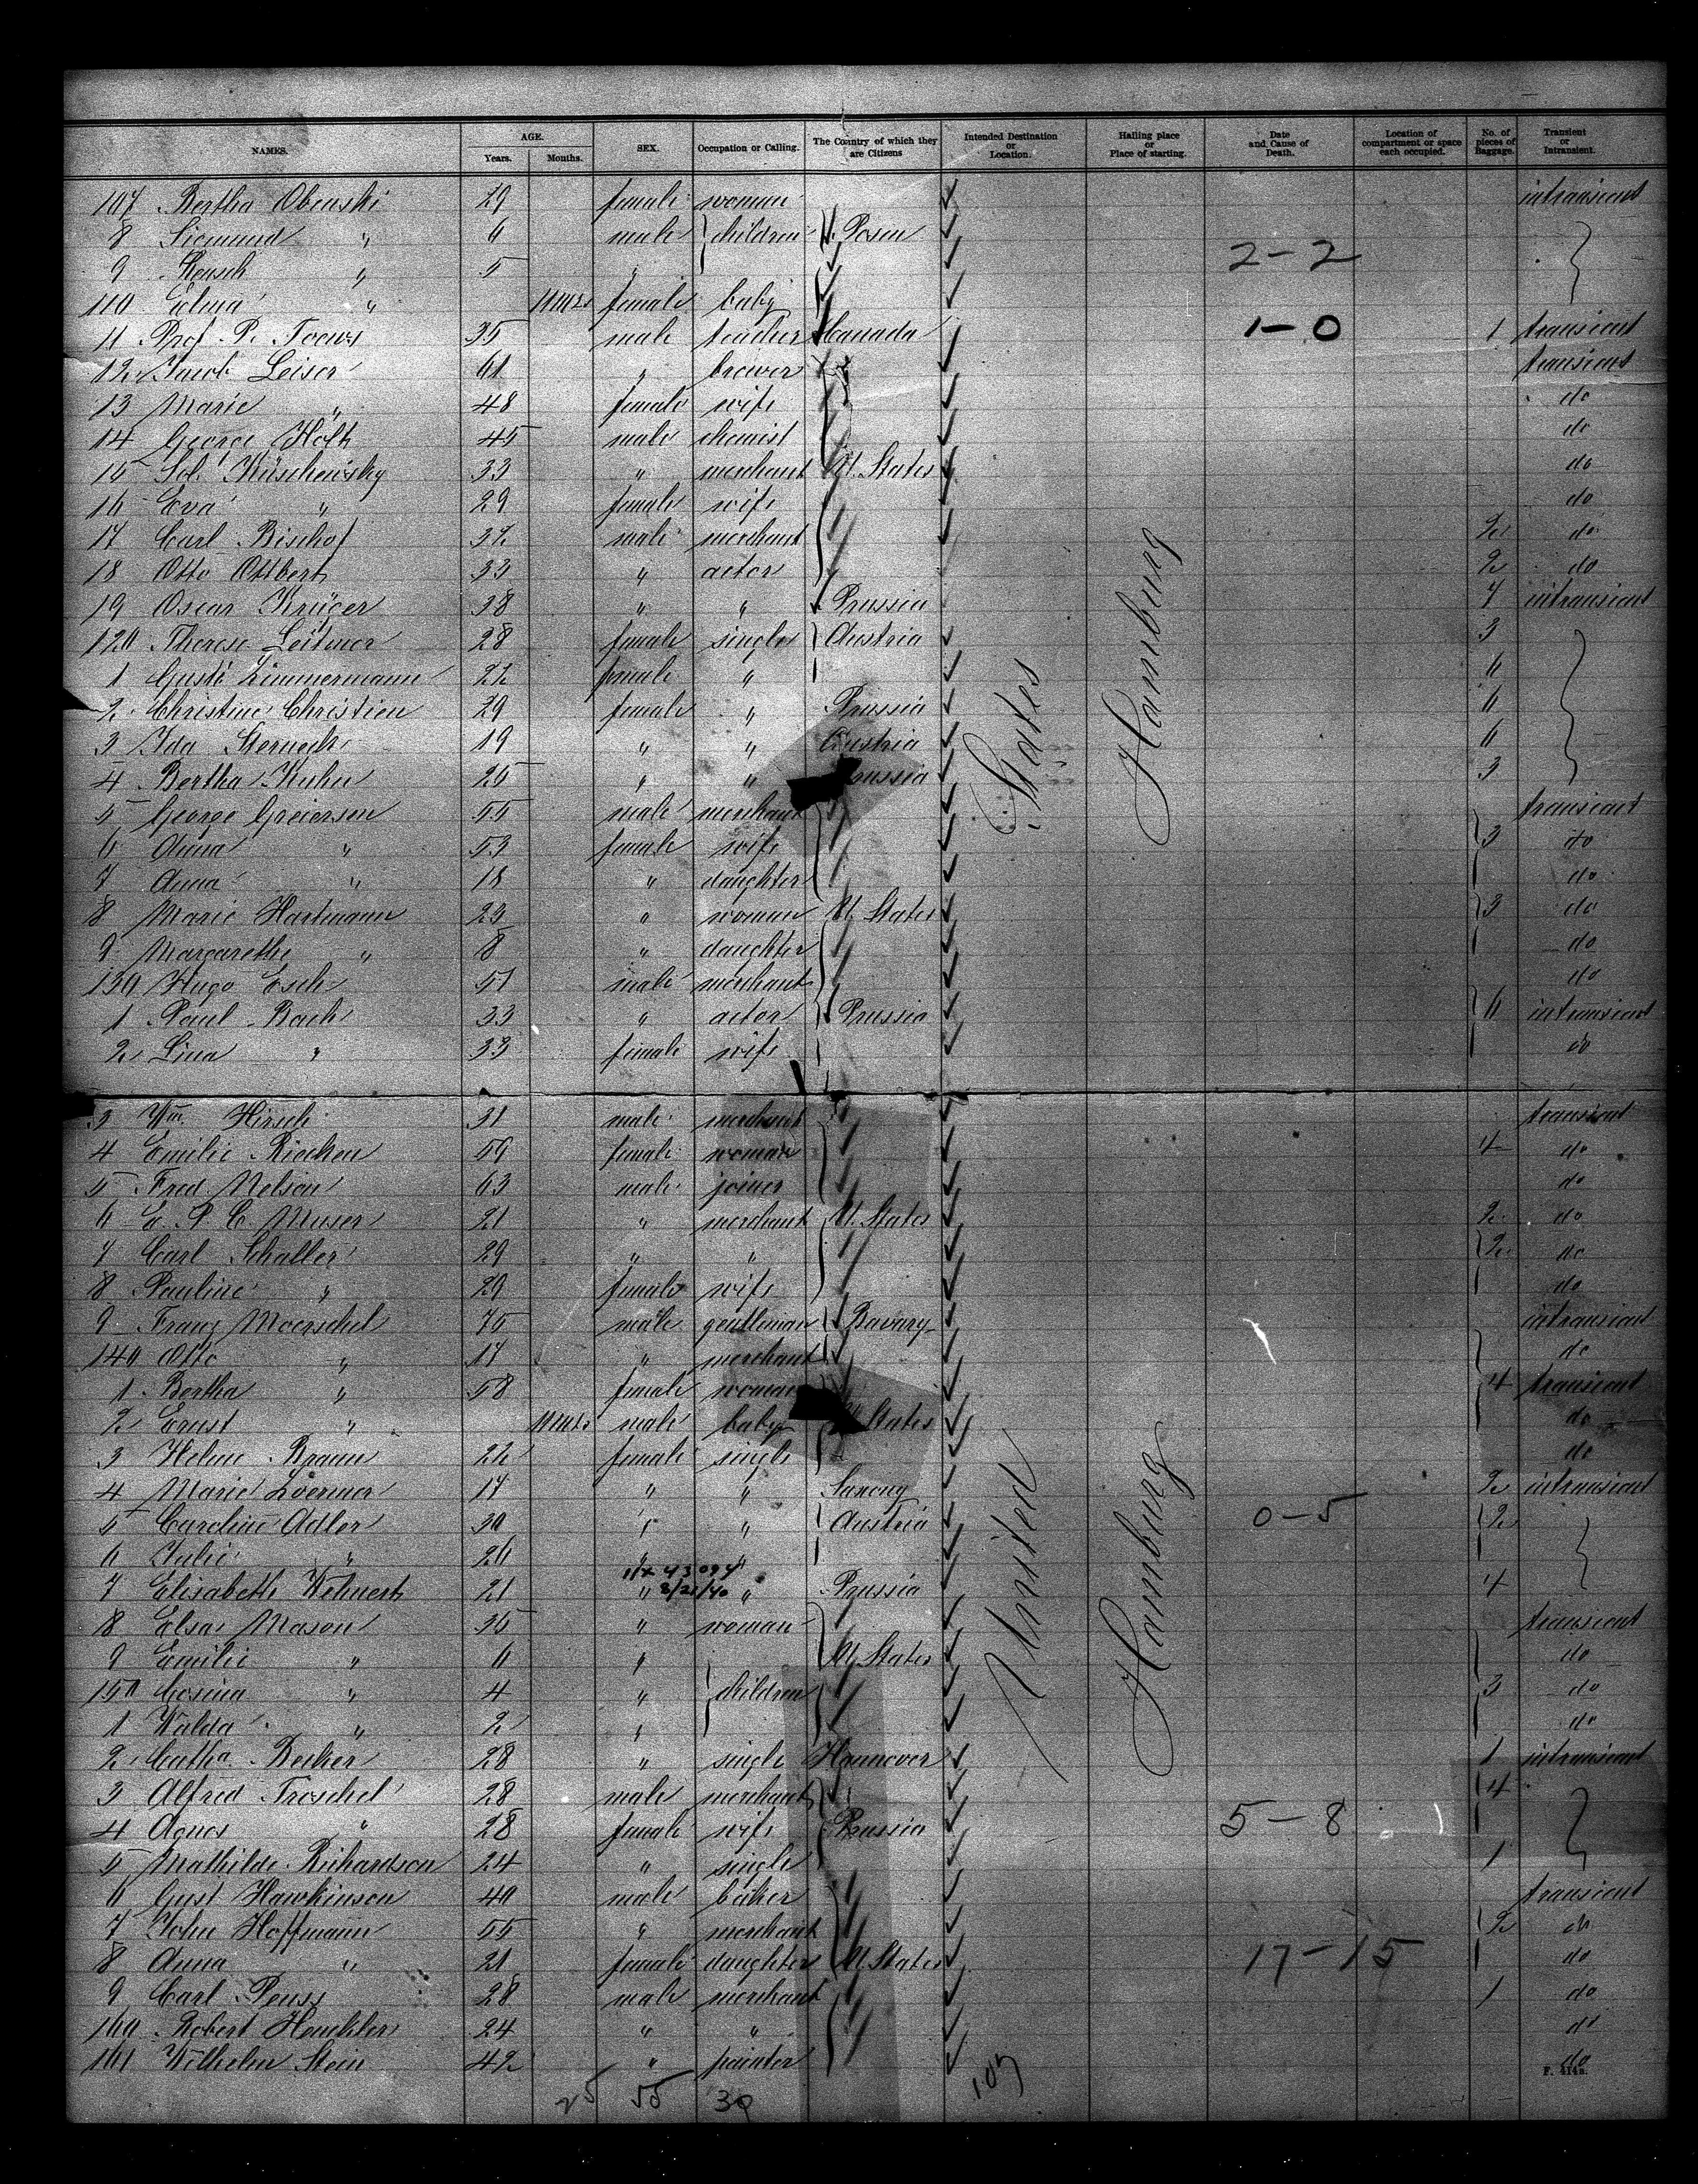 NAMES. AGE. Years. Months. SEX. Occupation or Calling. The Country of which they are Citizens Intended Destination or Location. Hailing place or Place of starting. Date and Cause of Death. Location of compartment or space each occupied. No. of pieces of Baggage. Transient or Intransient.
107 Bertha Obenski 29 female woman intransient
8 Siegmund " 6 male children Posen
9 " 5 " 2-2
110 Elma " 11 mts female baby
11 Prof. P. Toews 35 male teacher Canada 1-0 1 transient
12 Jacob Leiser 61 " brewer transient
13 Marie " 48 female wife do
14 George Holt 45 male chemist do
15 Sol. Kuschewsky 33 " merchant U. States do
16 Eva " 29 female wife do
17 Carl Bischof 32 male merchant 2 do
18 Otto Ottbert 33 " actor 2 do
19 Oscar Krüger 38 " " Prussia 7 intransient
120 Therese Leitner 28 female single Austria 3
1 Guste Zimmermann 22 female " 6
2 Christine Christien 29 female " Prussia 6
3 Ida Sterneck 19 " " Austria 6
4 Bertha Kuhn 25 " " Prussia 3
5 George Greiersen 55 male merchant transient
6 Anna " 53 female wife 3 do
7 Anna " 18 " daughter do
8 Marie Hartmann 23 " woman U. States 3 do
9 Margarethe " 8 " daughter do
130 Hugo Esch 51 male merchant do
1 Paul Bach 33 " actor Prussia 6 intransient
2 Lina " 33 female wife do
3 Wm. Hirsch 31 male merchant transient
4 Emilie Riecken 59 female woman 4 do
5 Fred Nelson 63 male joiner do
6 P. C. Muser 21 " merchant U. States 2 do
7 Carl Schaller 29 " " 2 do
8 Pauline " 29 female wife do
9 Franz Moerschel 75 male gentleman Bavary intransient
140 Otto " 17 " merchant do
1 Bertha " 58 female woman 4 transient
2 Ernst " 11 mts male baby U. States do
3 Helene Braun 22 female single do
4 Marie 17 " " Saxony 2 intransient
5 Caroline Adler 30 " " Austria 0-5 2
6 Julie " 26 " "
1/4 43094
7 Elisabeth Wehnert 21 " 2/21/40 " Prussia 4
8 Elsa Mason 35 " woman transient
9 Emilie " 6 " U. States do
150 Cosina " 4 " children 3 do
1 Walda " 2 " do
2 Catha. Becker 28 " single Hannover 1 intransient
3 Alfred Troschel 28 male merchant 4
4 Agnes " 28 female wife Prussia 5-8
5 Mathilde Richardson 24 " single 1
6 Gust Hawkinson 40 male baker transient
7 John Hoffmann 55 " merchant 2 do
8 Anna " 21 female daughter U. States 17-15 do
9 Carl Peuss 28 male merchant 1 do
160 Robert Henckler 24 " " do
161 Wilhelm Stein 42 " painter do
United States
Hamburg
Hamburg
25 55 30 107
F. 414a.